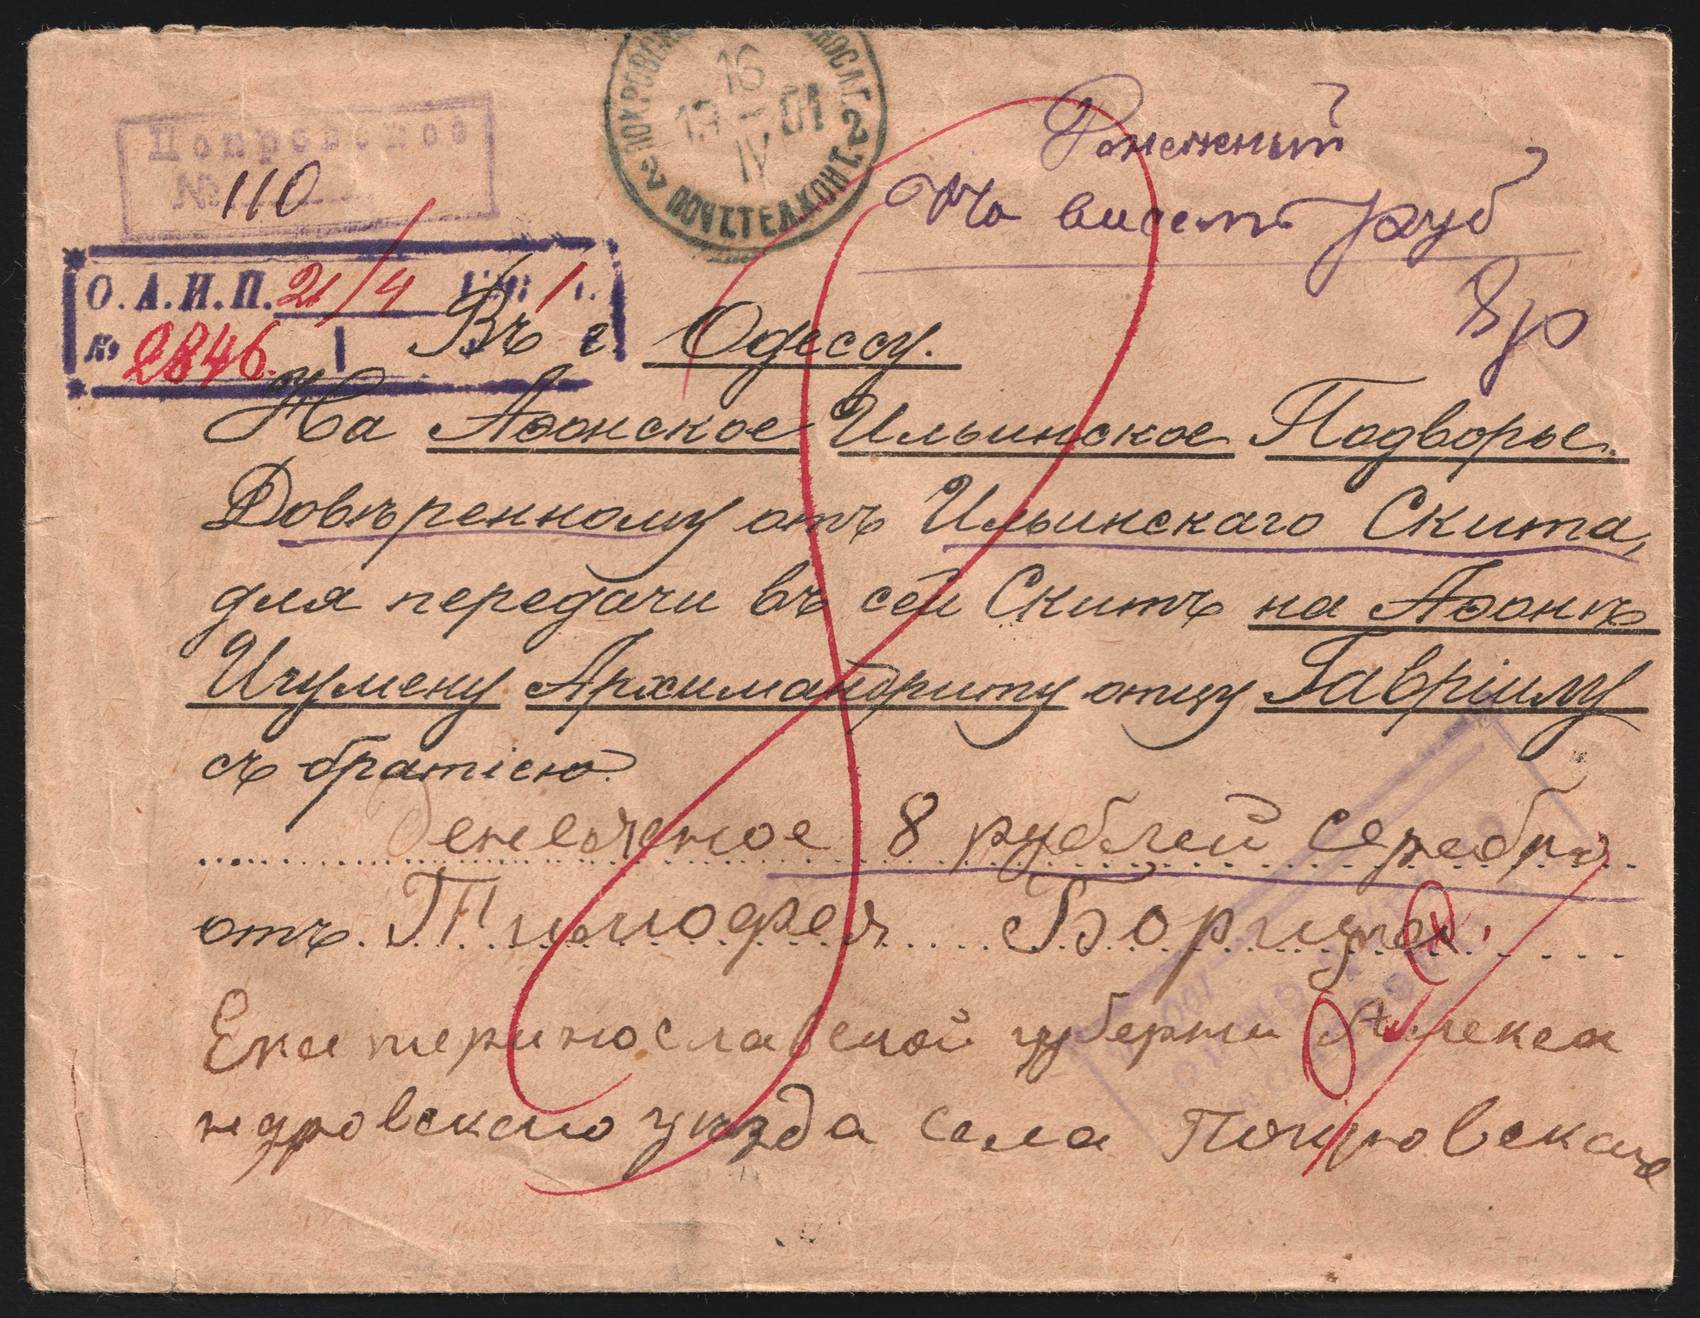 Покровское
№ 110
ПОКРОВСК
НОСЛ. Г.
16 IV 1901
ПОЧТ. ТЕЛ. КОНТ.
2 2
Денежный
На висемъ руб
8 р
О.А.И.П. 21/4 1901 г.
№ 2846.
Въ г. Одессу.
На Аѳонское Ильинское Подворье.
Довѣренному отъ Ильинскаго Скита,
для передачи въ сей Скитъ на Аѳонѣ
Игумену Архимандриту отцу Гавріилу
съ братією.
Денежное 8 рублей серебро
отъ Тимофея
Екатеринославской губерни Алекса
ндровскаго уѣзда села Покровскаго